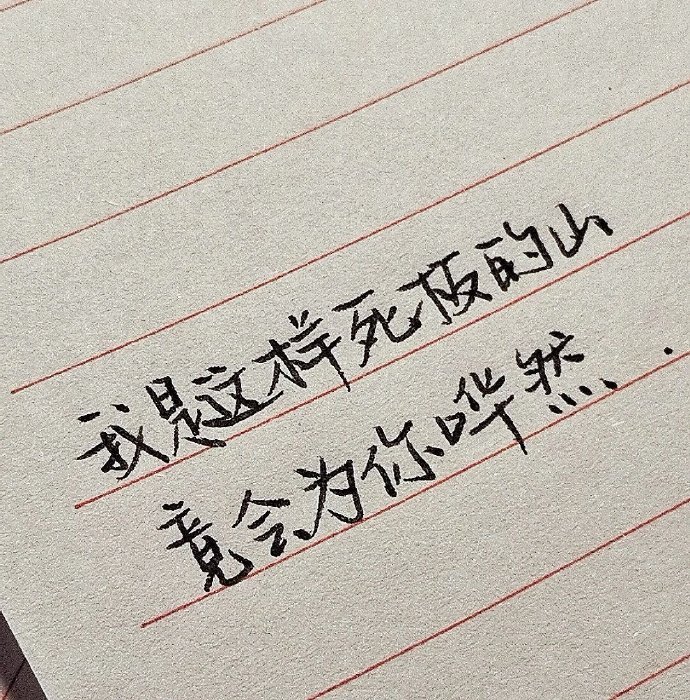 我是这样死板的山
竟会为你哗然.